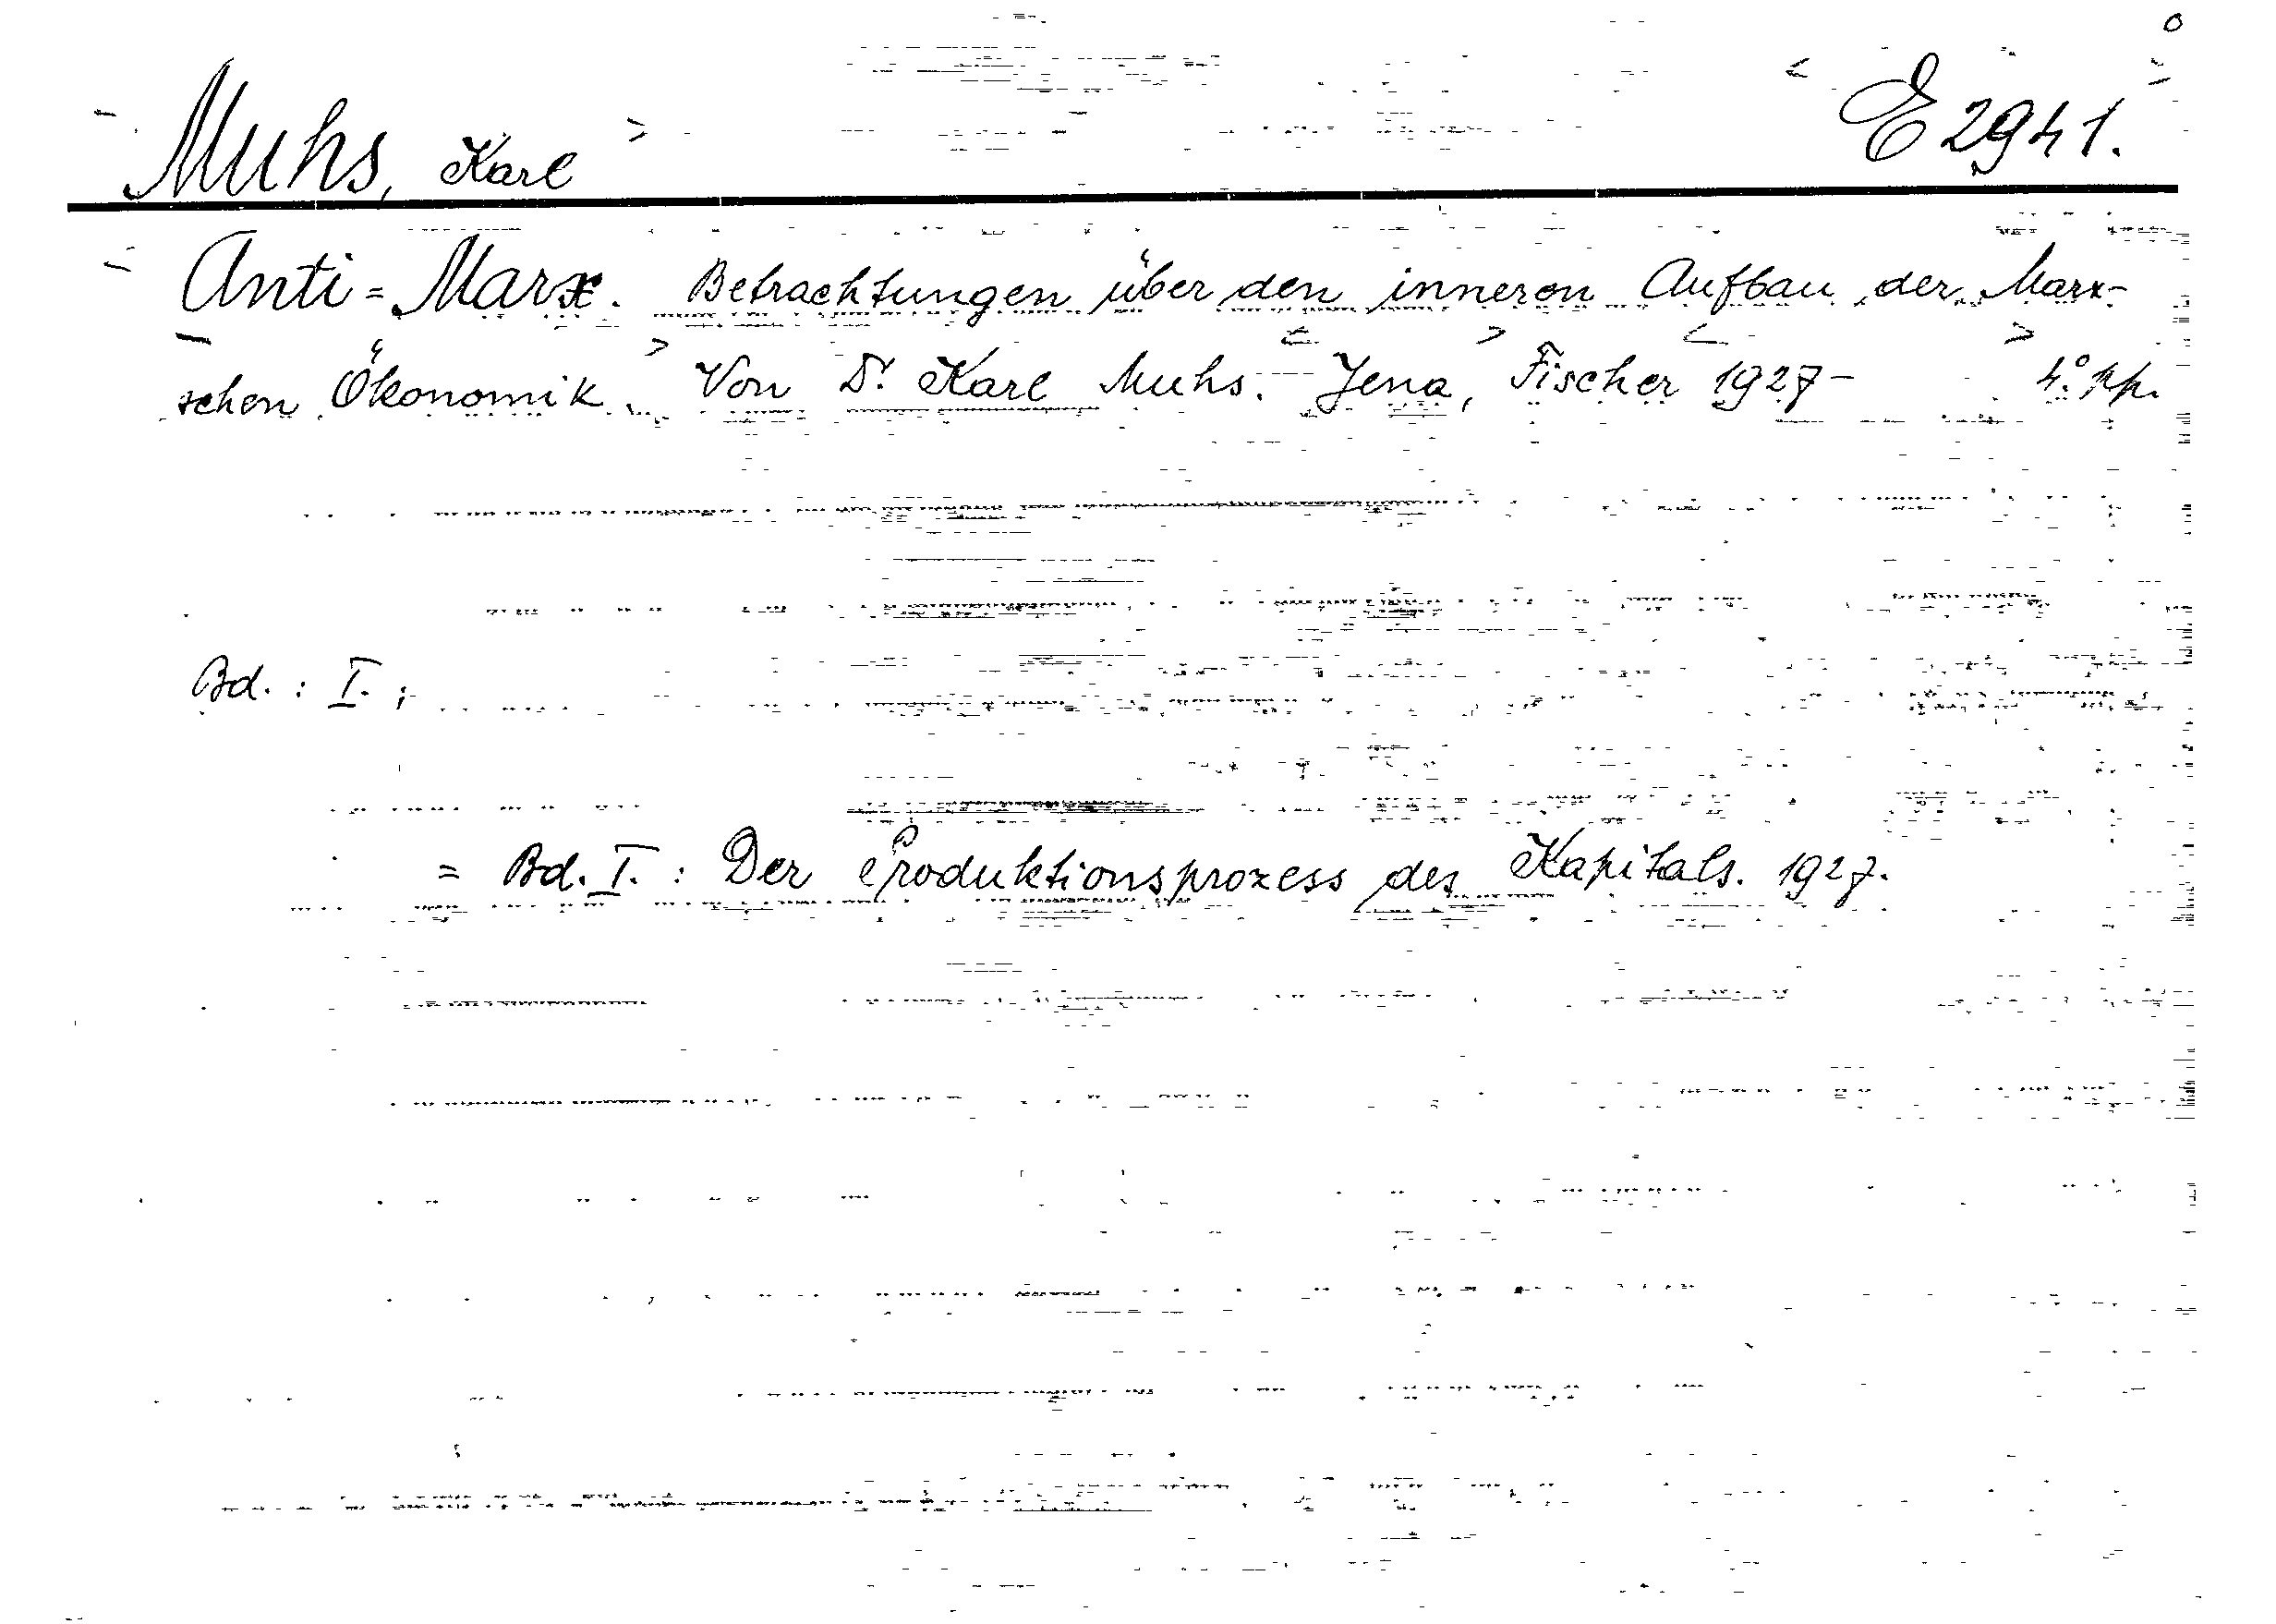 Muhs, Karl E 2941.
Anti=Marx. Betrachtungen über den inneren Aufbau der Marx-
schen Ökonomik. Von Dr. Karl Muhs. Jena, Fischer 1927- 4° pp.
Bd. : I. ;
= Bd. I. : Der Produktionsprozess des Kapitals. 1927.